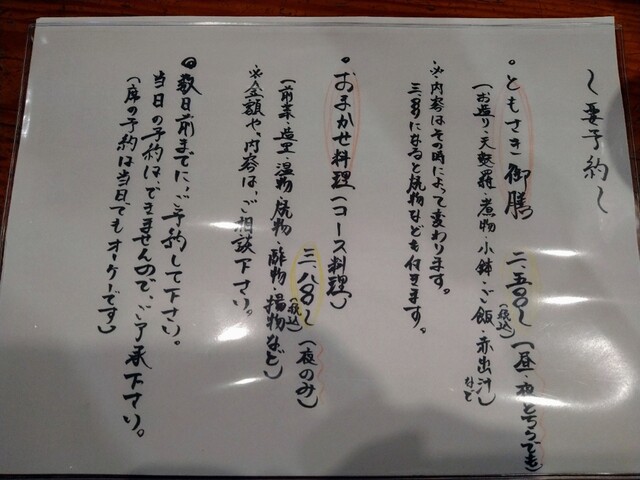 〜要予約〜
・ともさき御膳 二、五〇〇〜(税込)(昼・夜どちらでも)
(お造り・天麩羅・煮物・小鉢・ご飯・赤出汁など)
※内容はその時によって変わります。
三、〇〇〇になると焼物なども付きます。
・おまかせ料理(コース料理)
三、八〇〇〜(税込)(夜のみ)
(前菜・造里・温物・焼物・酢物・揚物など)
※金額や、内容は、ご相談下さい。
◎数日前までに、ご予約して下さい。
当日の予約は、できませんので、ご了承下さい。
(席の予約は当日でもオーケーです)